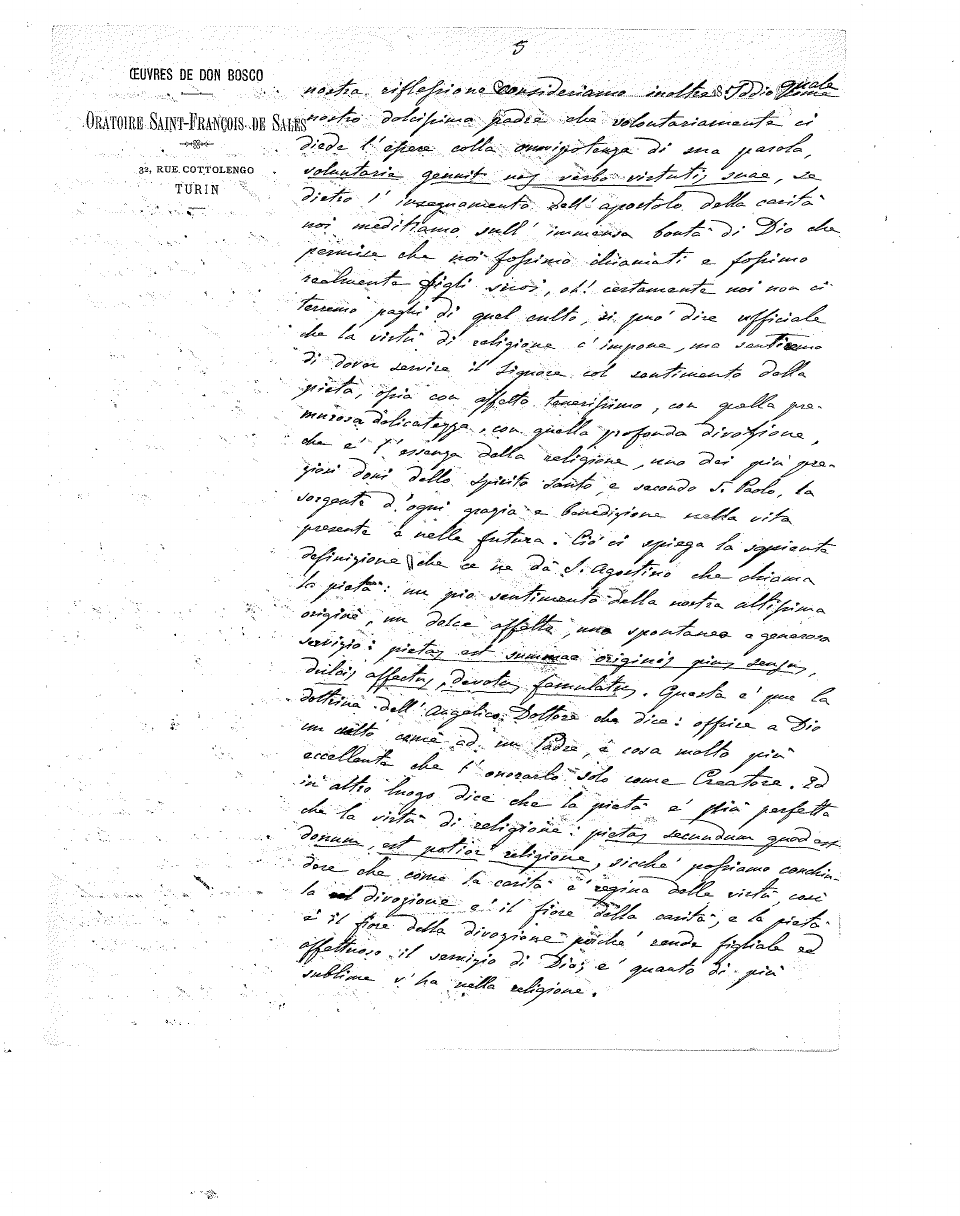 5
ŒUVRES DE DON BOSCO
ORATOIRE SAINT-FRANÇOIS DE SALES
32, RUE COTTOLENGO
TURIN
nostra riflessione consideriamo inoltre Iddio quale
nostro dolcissimo padre che volontariamente ci
diede l'essere colla onnipotenza di sua parola,
voluntarie genuit nos verbo virtutis suae, se
dietro l'insegnamento dell'apostolo della carità
noi meditiamo sull'immensa bontà di Dio che
permise che noi fossimo chiamati e fossimo
realmente figli suoi, oh! certamente noi non ci
terremo paghi di quel culto, si può dire ufficiale
che la virtù di religione c'impone, ma sentiremo
di dover servire il Signore col sentimento della
pietà, ossia con affetto tenerissimo, con quella pre-
murosa delicatezza, con quella profonda divozione,
che è l'essenza della religione, uno dei più pre-
ziosi doni dello Spirito Santo, e secondo S. Paolo, la
sorgente d'ogni grazia e benedizione nella vita
presente e nella futura. Ciò ci spiega la sapiente
definizione che ce ne dà S. Agostino che chiama
la pietà: un pio sentimento della nostra altissima
origine, un dolce affetto, uno spontaneo e generoso
servizio: pietas est summae originis pius sensus,
dulcis affectus, devotus famulatus. Questa è pur la
dottrina dell'Angelico Dottore che dice: offrire a Dio
un culto come ad un Padre, è cosa molto più
eccellente che l'onorarlo solo come Creatore. Ed
in altro luogo dice che la pietà è più perfetta
che la virtù di religione: pietas secundum quod est
donum, est potior religione, sicché possiamo conchiu-
dere che come la carità è regina delle virtù, così
la divozione è il fiore della carità, e la pietà
è il fiore della divozione poiché rende figliale ed
affettuoso il servizio di Dio; è quanto di più
sublime v'ha nella religione.